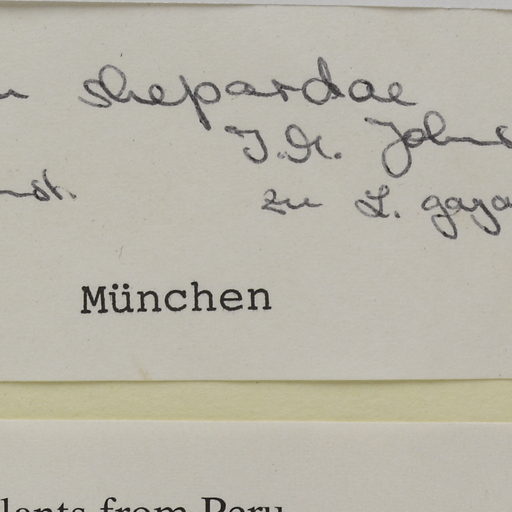 shepardae
I.M. Johns
zu L. gaya
München
lants from Peru